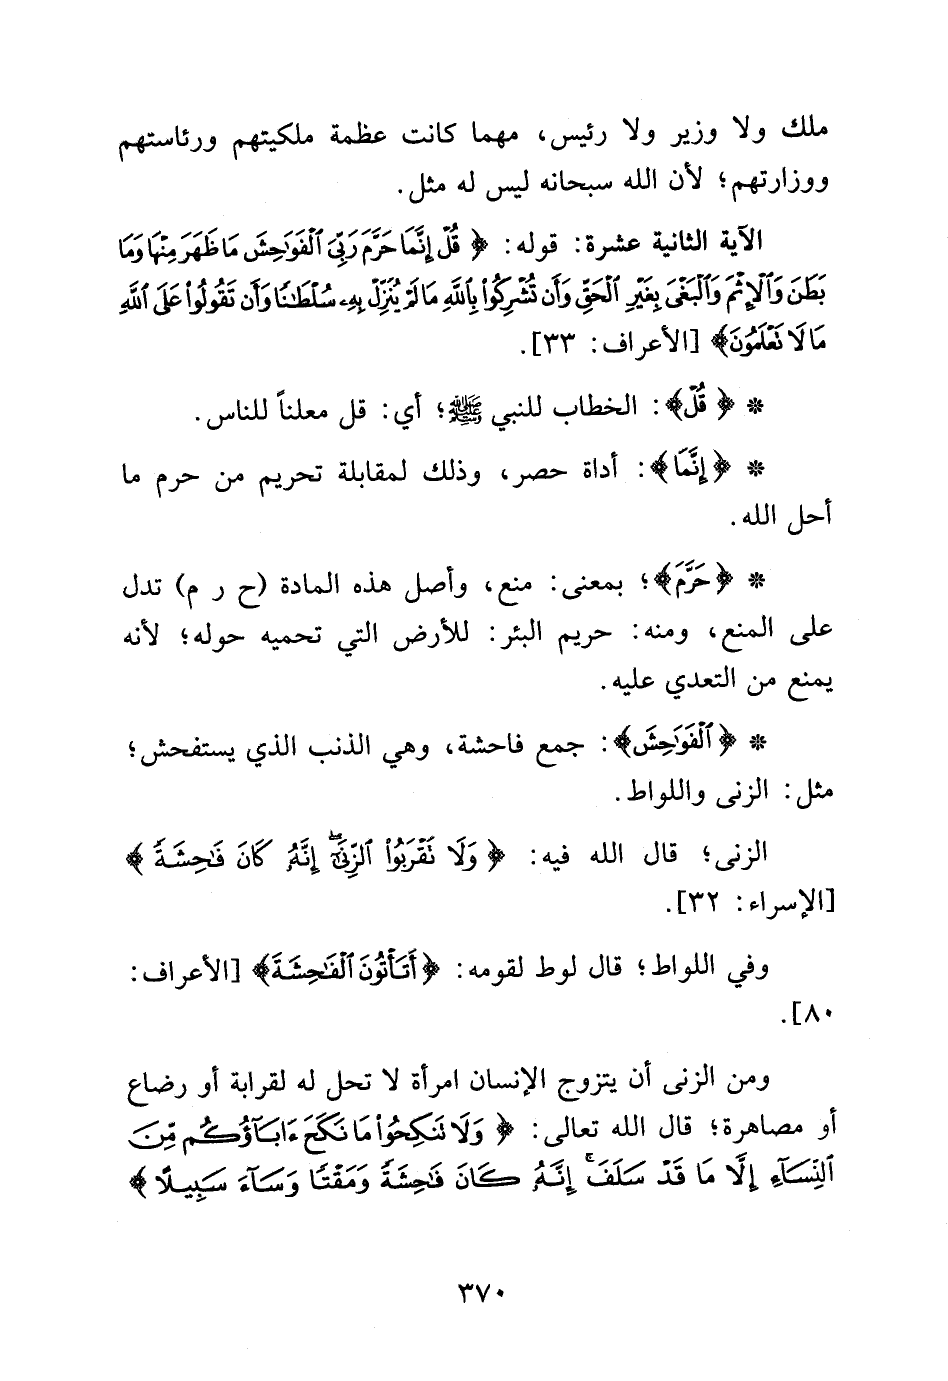 ملك ولا وزير ولا رئيس، مهما كانت عظمة ملكيتهم ورئاستهم
ووزارتهم؛ لأن الله سبحانه ليس له مثل.
الآية الثانية عشرة: قوله: ﴿ قُلْ إِنَّمَا حَرَّمَ رَبِّيَ ٱلْفَوَٰحِشَ مَا ظَهَرَ مِنْهَا وَمَا
بَطَنَ وَٱلْإِثْمَ وَٱلْبَغْىَ بِغَيْرِ ٱلْحَقِّ وَأَن تُشْرِكُوا۟ بِٱللَّهِ مَا لَمْ يُنَزِّلْ بِهِۦ سُلْطَٰنًا وَأَن تَقُولُوا۟ عَلَى ٱللَّهِ
مَا لَا تَعْلَمُونَ﴾ [الأعراف: ٣٣].
* ﴿ قُلْ﴾: الخطاب للنبي ﷺ؛ أي: قل معلناً للناس.
* ﴿إِنَّمَا﴾: أداة حصر، وذلك لمقابلة تحريم من حرم ما
أحل الله.
* ﴿حَرَّمَ﴾؛ بمعنى: منع، وأصل هذه المادة (ح ر م) تدل
على المنع، ومنه: حريم البئر: للأرض التي تحميه حوله؛ لأنه
يمنع من التعدي عليه.
* ﴿ٱلْفَوَٰحِشَ﴾: جمع فاحشة، وهي الذنب الذي يستفحش؛
مثل: الزنى واللواط.
الزنى؛ قال الله فيه: ﴿ وَلَا تَقْرَبُوا۟ ٱلزِّنَىٰٓ ۖ إِنَّهُۥ كَانَ فَٰحِشَةً ﴾
[الإسراء: ٣٢].
وفي اللواط؛ قال لوط لقومه: ﴿أَتَأْتُونَ ٱلْفَٰحِشَةَ﴾ [الأعراف:
٨٠].
ومن الزنى أن يتزوج الإنسان امرأة لا تحل له لقرابة أو رضاع
أو مصاهرة؛ قال الله تعالى: ﴿ وَلَا تَنكِحُوا۟ مَا نَكَحَ ءَابَآؤُكُم مِّنَ
ٱلنِّسَآءِ إِلَّا مَا قَدْ سَلَفَ ۚ إِنَّهُۥ كَانَ فَٰحِشَةً وَمَقْتًا وَسَآءَ سَبِيلًا ﴾
٣٧٠